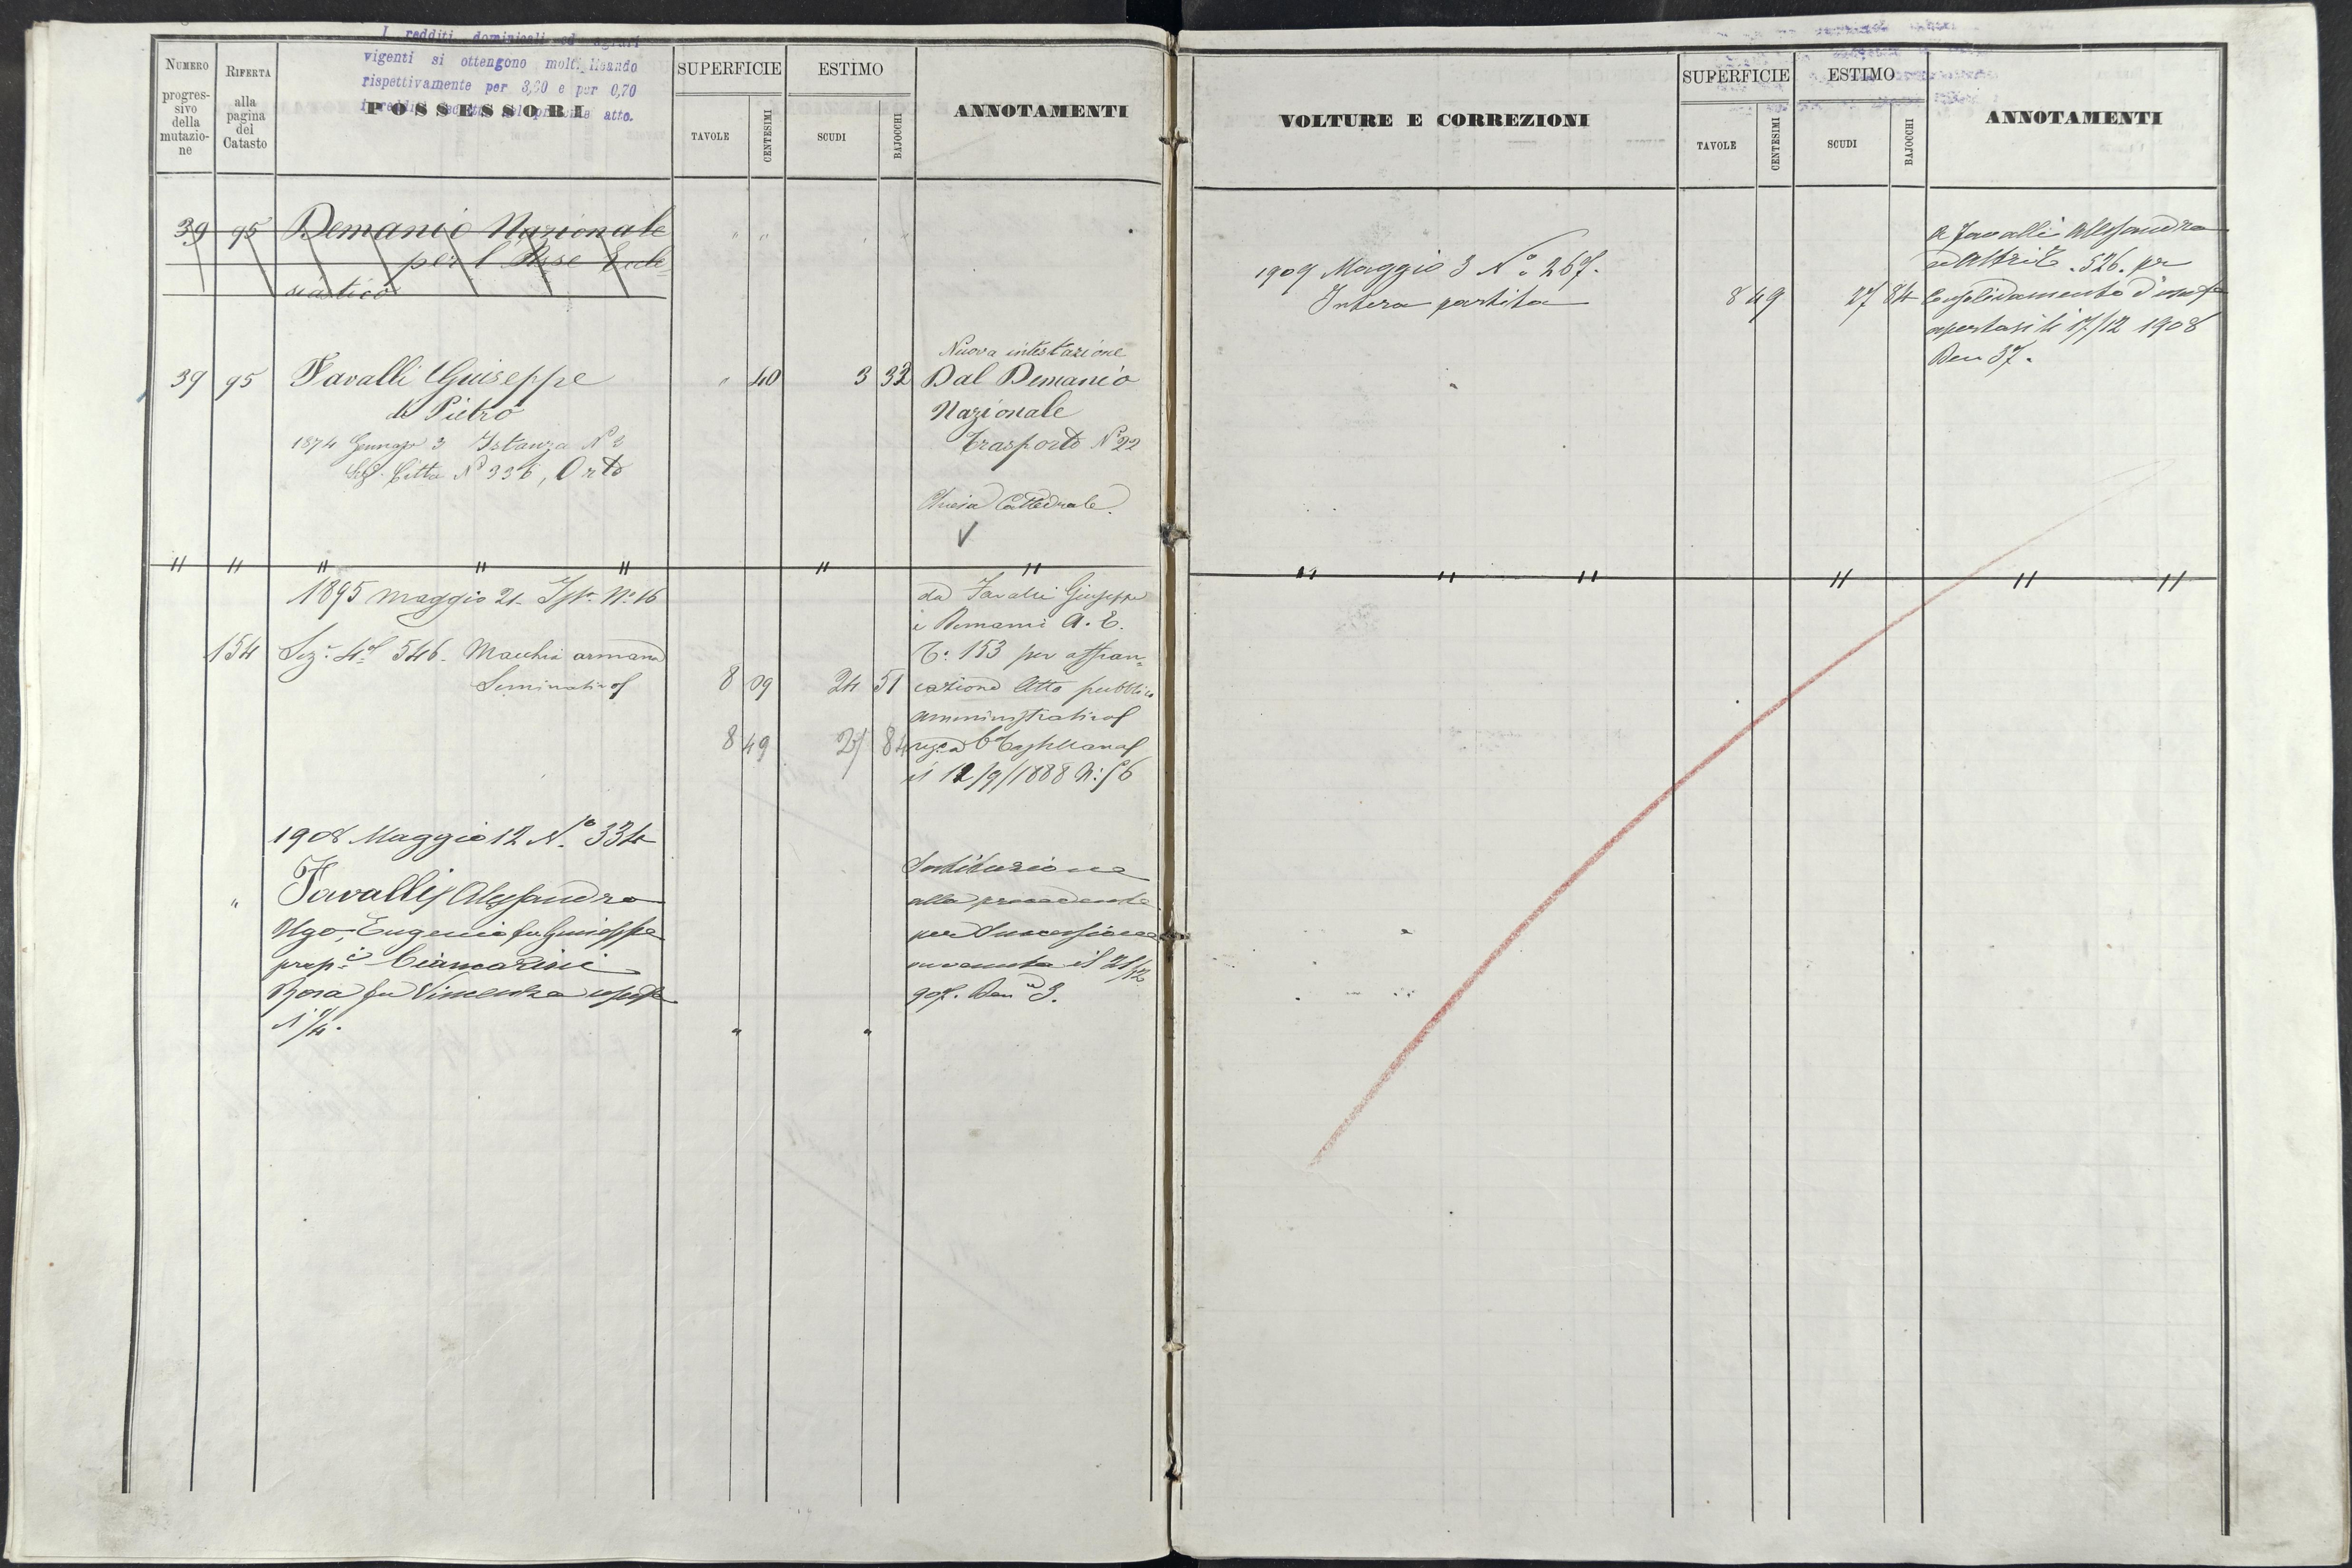 I redditi dominicali ed agrari
vigenti si ottengono moltiplicando
rispettivamente per 3,60 e per 0,70
atto.
NUMERO
progres-
sivo
della
mutazio-
ne
RIFERTA
alla
pagina
del
Catasto
POSSESSORI
SUPERFICIE
TAVOLE
CENTESIMI
ESTIMO
SCUDI
BAJOCCHI
ANNOTAMENTI
39 95 Demanio Nazionale " "
per l'Asse Eccle=
siastico
Nuova intestazione
39 95 Favalli Giuseppe " 40 3 32 Dal Demanio
di Pietro Nazionale
1874 Gennajo 3 Istanza N° 3 Trasporto N° 22
Città N° 336, Orto
Chiesa Cattedrale.
" " " " " " "
1895 maggio 21 Ist. N° 16 da Favalli Giuseppe
e Demanio A. C.
154 Sez. 4a 546 Macchia 8 09 24 51 T. 153 per affran=
Seminativo cazione Atto pubblico
amministrativo
8 49 27 84
il 12/9/1888 N: 56
1908 Maggio 12 N° 334
" Favalli Alessandro Sostituzione
Ugo, Eugenio fu Giuseppe alla precedente
prop. i Ciancarini per Successione
Rosa fu Vincenzo avvenuta il 21/12
907. Den 3.
1/4. " "
VOLTURE E CORREZIONI
SUPERFICIE
TAVOLE
CENTESIMI
ESTIMO
SCUDI
BAJOCCHI
ANNOTAMENTI
A Favalli Alessandro
1909 Maggio 3 N° 267. ed Altri T. 526. per
Intera partita 8 49 27 84 Consolidamento d'usuf.
apertasi li 17/12 1908
Den 37.
" " " " " "